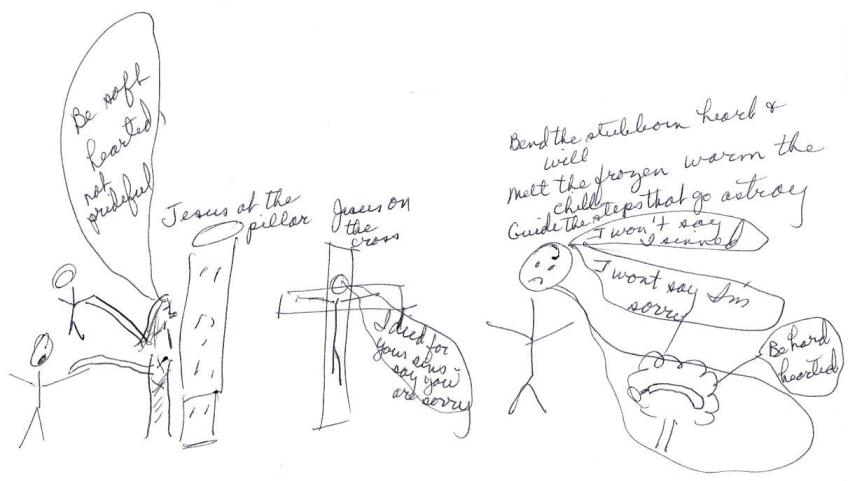 Be soft
hearted
not
prideful
Jesus at the
pillar
Jesus on
the
cross
I died for
your sins -
say you
are sorry
Bend the stubborn heart &
will
Melt the frozen warm the
chill
Guide the steps that go astray
I won't say
I sinned
I wont say I'm
sorry
Be hard
hearted